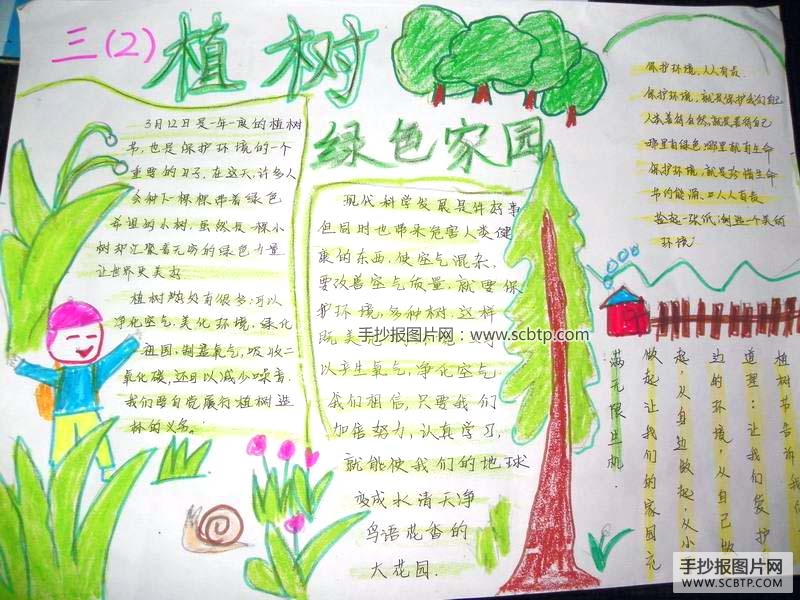 三(2)
植树
绿色家园
3月12日是一年一度的植树
节,也是保护环境的一个
重要的日子,在这天,许多人
会种下一棵棵带着绿色
希望的小树,虽然是一棵小
树却汇聚着无穷的绿色力量
让世界更美好
植树好处有很多:可以
净化空气,美化环境,绿化
祖国,制造氧气,吸收二
氧化碳,还可以减少噪音.
我们要自觉履行植树造
林的义务.
现代科学发展是件好事
但同时也带来危害人类健
康的东西,使空气混杂,
要改善空气质量,就要保
护环境,多种树,这样
既美
以产生氧气,净化空气
我们相信,只要我们
加倍努力,认真学习,
就能使我们的地球
变成水清天净
鸟语花香的
大花园.
保护环境,人人有责
保护环境,就是保护我们自己
人类善待自然,就是善待自己
哪里有绿色哪里就有生命
保护环境,就是珍惜生命
节约能源,人人有责
环境
植树节告诉我
道理:让我们爱护
边的环境,从自己做
起,从身边做起,从小
做起让我们的家园充
满无限生机.
手抄报图片网:www.scbtp.com
手抄报图片网
WWW.SCBTP.COM